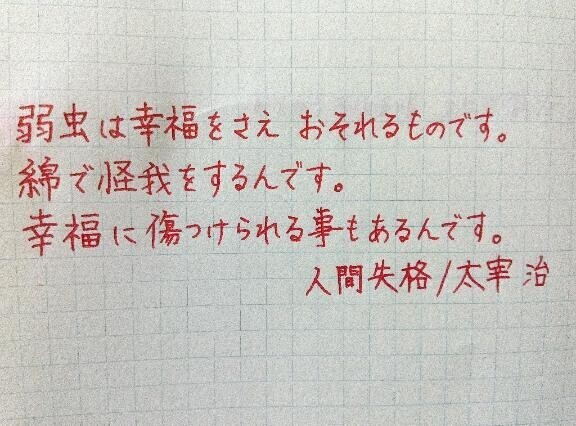 弱虫は幸福をさえ おそれるものです。
綿で怪我をするんです。
幸福に傷つけられる事もあるんです。
人間失格/太宰 治